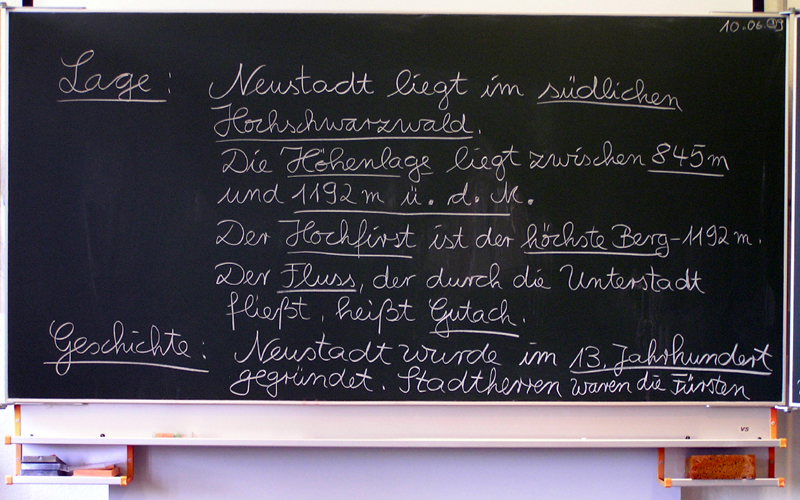 10.06.
Lage: Neustadt liegt im südlichen
Hochschwarzwald.
Die Höhenlage liegt zwischen 845m
und 1192m ü. d. M.
Der Hochfirst ist der höchste Berg-1192m.
Der Fluss, der durch die Unterstadt
fließt, heißt Gutach.
Geschichte: Neustadt wurde im 13. Jahrhundert
gegründet. Stadtherren waren die Fürsten
VS